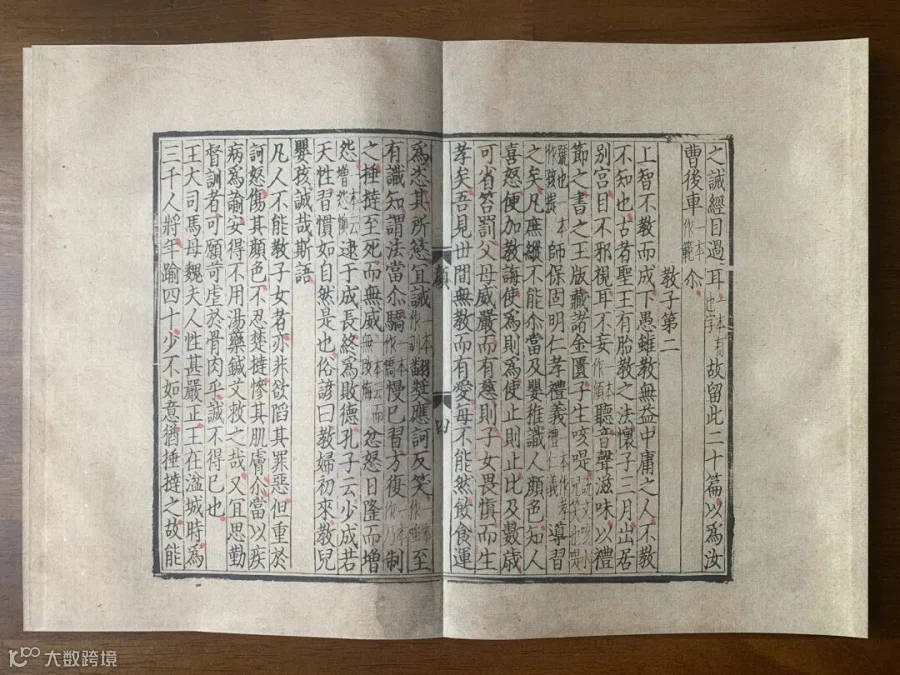 之誡經目過耳一本有也字故留此二十篇以為汝
曹後車一本作範尒
教子第二
上智不教而成下愚雖教無益中庸之人不教
不知也古者聖王有胎教之法懷子三月出居
別宮目不邪視耳不妄一本作傾聽音聲滋味以禮
節之書之王版藏諸金匱子生咳㖷說文咳小兒笑也㖷
號也一本作孩師保固明仁孝禮義一本作孝禮仁義導習
之矣凡庶縱不能尒當及嬰稚識人顏色知人
喜怒便加教誨使為則為使止則止比及數歲
可省笞罰父母威嚴而有慈則子女畏慎而生
孝矣吾見世間無教而有愛母不能然飲食運
顏 四
為恣其所慾宜誡一本作訓翻奬應訶反笑一本作至
有識知謂法當尒驕一本作憍慢已習方復一本作乃制
之捶撻至死而無威一本云而無改悔忿怒日隆而增
怨一本云增怨懊逮于成長終為敗德孔子云少成若
天性習慣如自然是也俗諺曰教婦初來教兒
嬰孩誠哉斯語
凡人不能教子女者亦非欲陷其罪惡但重於
訶怒傷其顏色不忍楚撻慘其肌膚尒當以疾
病為諭安得不用湯藥鍼艾救之哉又宜思勤
督訓者可願苛虐於骨肉乎誠不得已也
王大司馬母魏夫人性甚嚴正王在湓城時為
三千人將年踰四十少不如意猶捶撻之故能
大数跨境